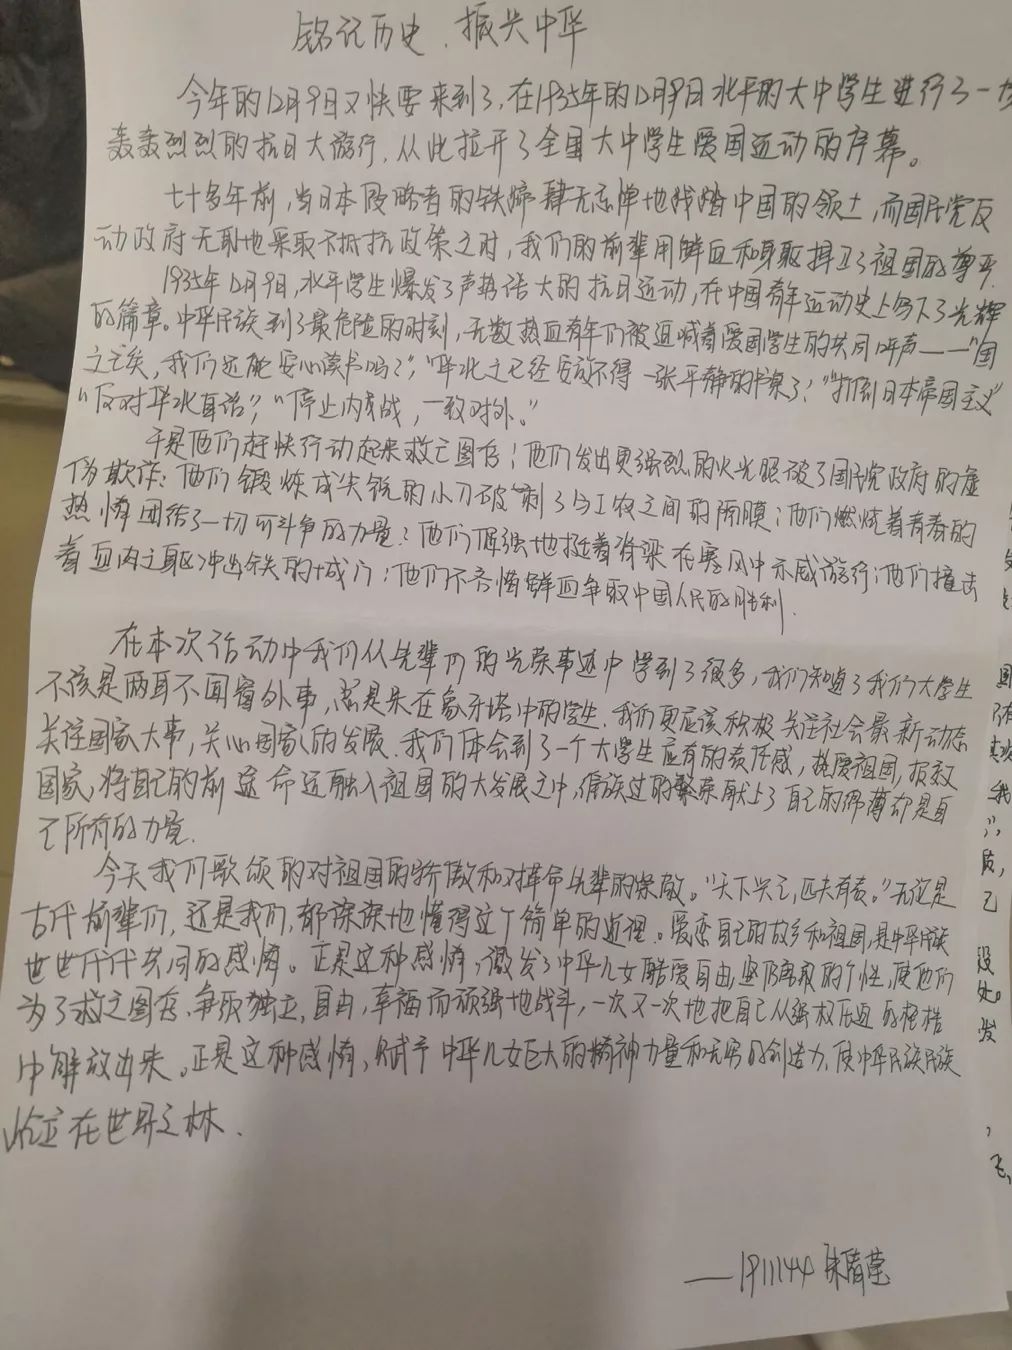 铭记历史、振兴中华
今年的12月9日又快要来到了,在1935年的12月9日北平的大中学生进行了一场
轰轰烈烈的抗日大游行,从此拉开了全国大中学生爱国运动的序幕。
七十多年前,当日本侵略者的铁蹄肆无忌惮地践踏中国的领土,而国民党反
动政府无耻地采取不抵抗政策之时,我们的前辈用鲜血和身躯捍卫了祖国的尊严
1935年12月9日,北平学生爆发了声势浩大的抗日运动,在中国青年运动史上写下了光辉
的篇章。中华民族到了最危险的时刻,无数热血青年们被迫喊着爱国学生的共同呼声——"国
之亡矣,我们还能安心读书吗?","华北之已经安放不得一张平静的书桌了!""打倒日本帝国主义"
"反对华北自治","停止内战,一致对外。"
于是他们赶快行动起来救亡图存;他们发出更强烈的火光照破了国民党政府的虚
伪欺诈;他们锻炼成尖锐的小刀破刺了与工农之间的隔膜;他们燃烧着青春的
热情团结了一切可斗争的力量;他们倔强地挺着脊梁在寒风中示威游行;他们撞击
着血肉之躯冲出铁的城门;他们不吝惜鲜血争取中国人民的胜利.
在本次活动中我们从先辈们的光荣事迹中学到了很多,我们知道了我们大学生
不该是两耳不闻窗外事,总是呆在象牙塔中的学生.我们更应该积极关注社会最新动态
关注国家大事,关心国家的发展.我们体会到了一个大学生应有的责任感,热爱祖国,报效
国家,将自己的前途命运融入祖国的大发展之中,的繁荣献上了自己的绵薄却是自
己所有的力量.
今天我们歌颂的对祖国的骄傲和对革命先辈的崇敬。"天下兴亡,匹夫有责。"无论是
古代前辈们,还是我们,都深深地懂得这个简单的道理。爱恋自己的故乡和祖国,是中华民族
世世代代共同的感情。正是这种感情,激发了中华儿女酷爱自由,的个性,使他们
为了救亡图存、争取独立、自由,幸福而顽强地战斗,一次又一次地把自己从强权压迫的桎梏
中解放出来。正是这种感情,赋予中华儿女巨大的精神力量和无穷的创造力,使中华民族民族
屹立在世界之林.
——1911144